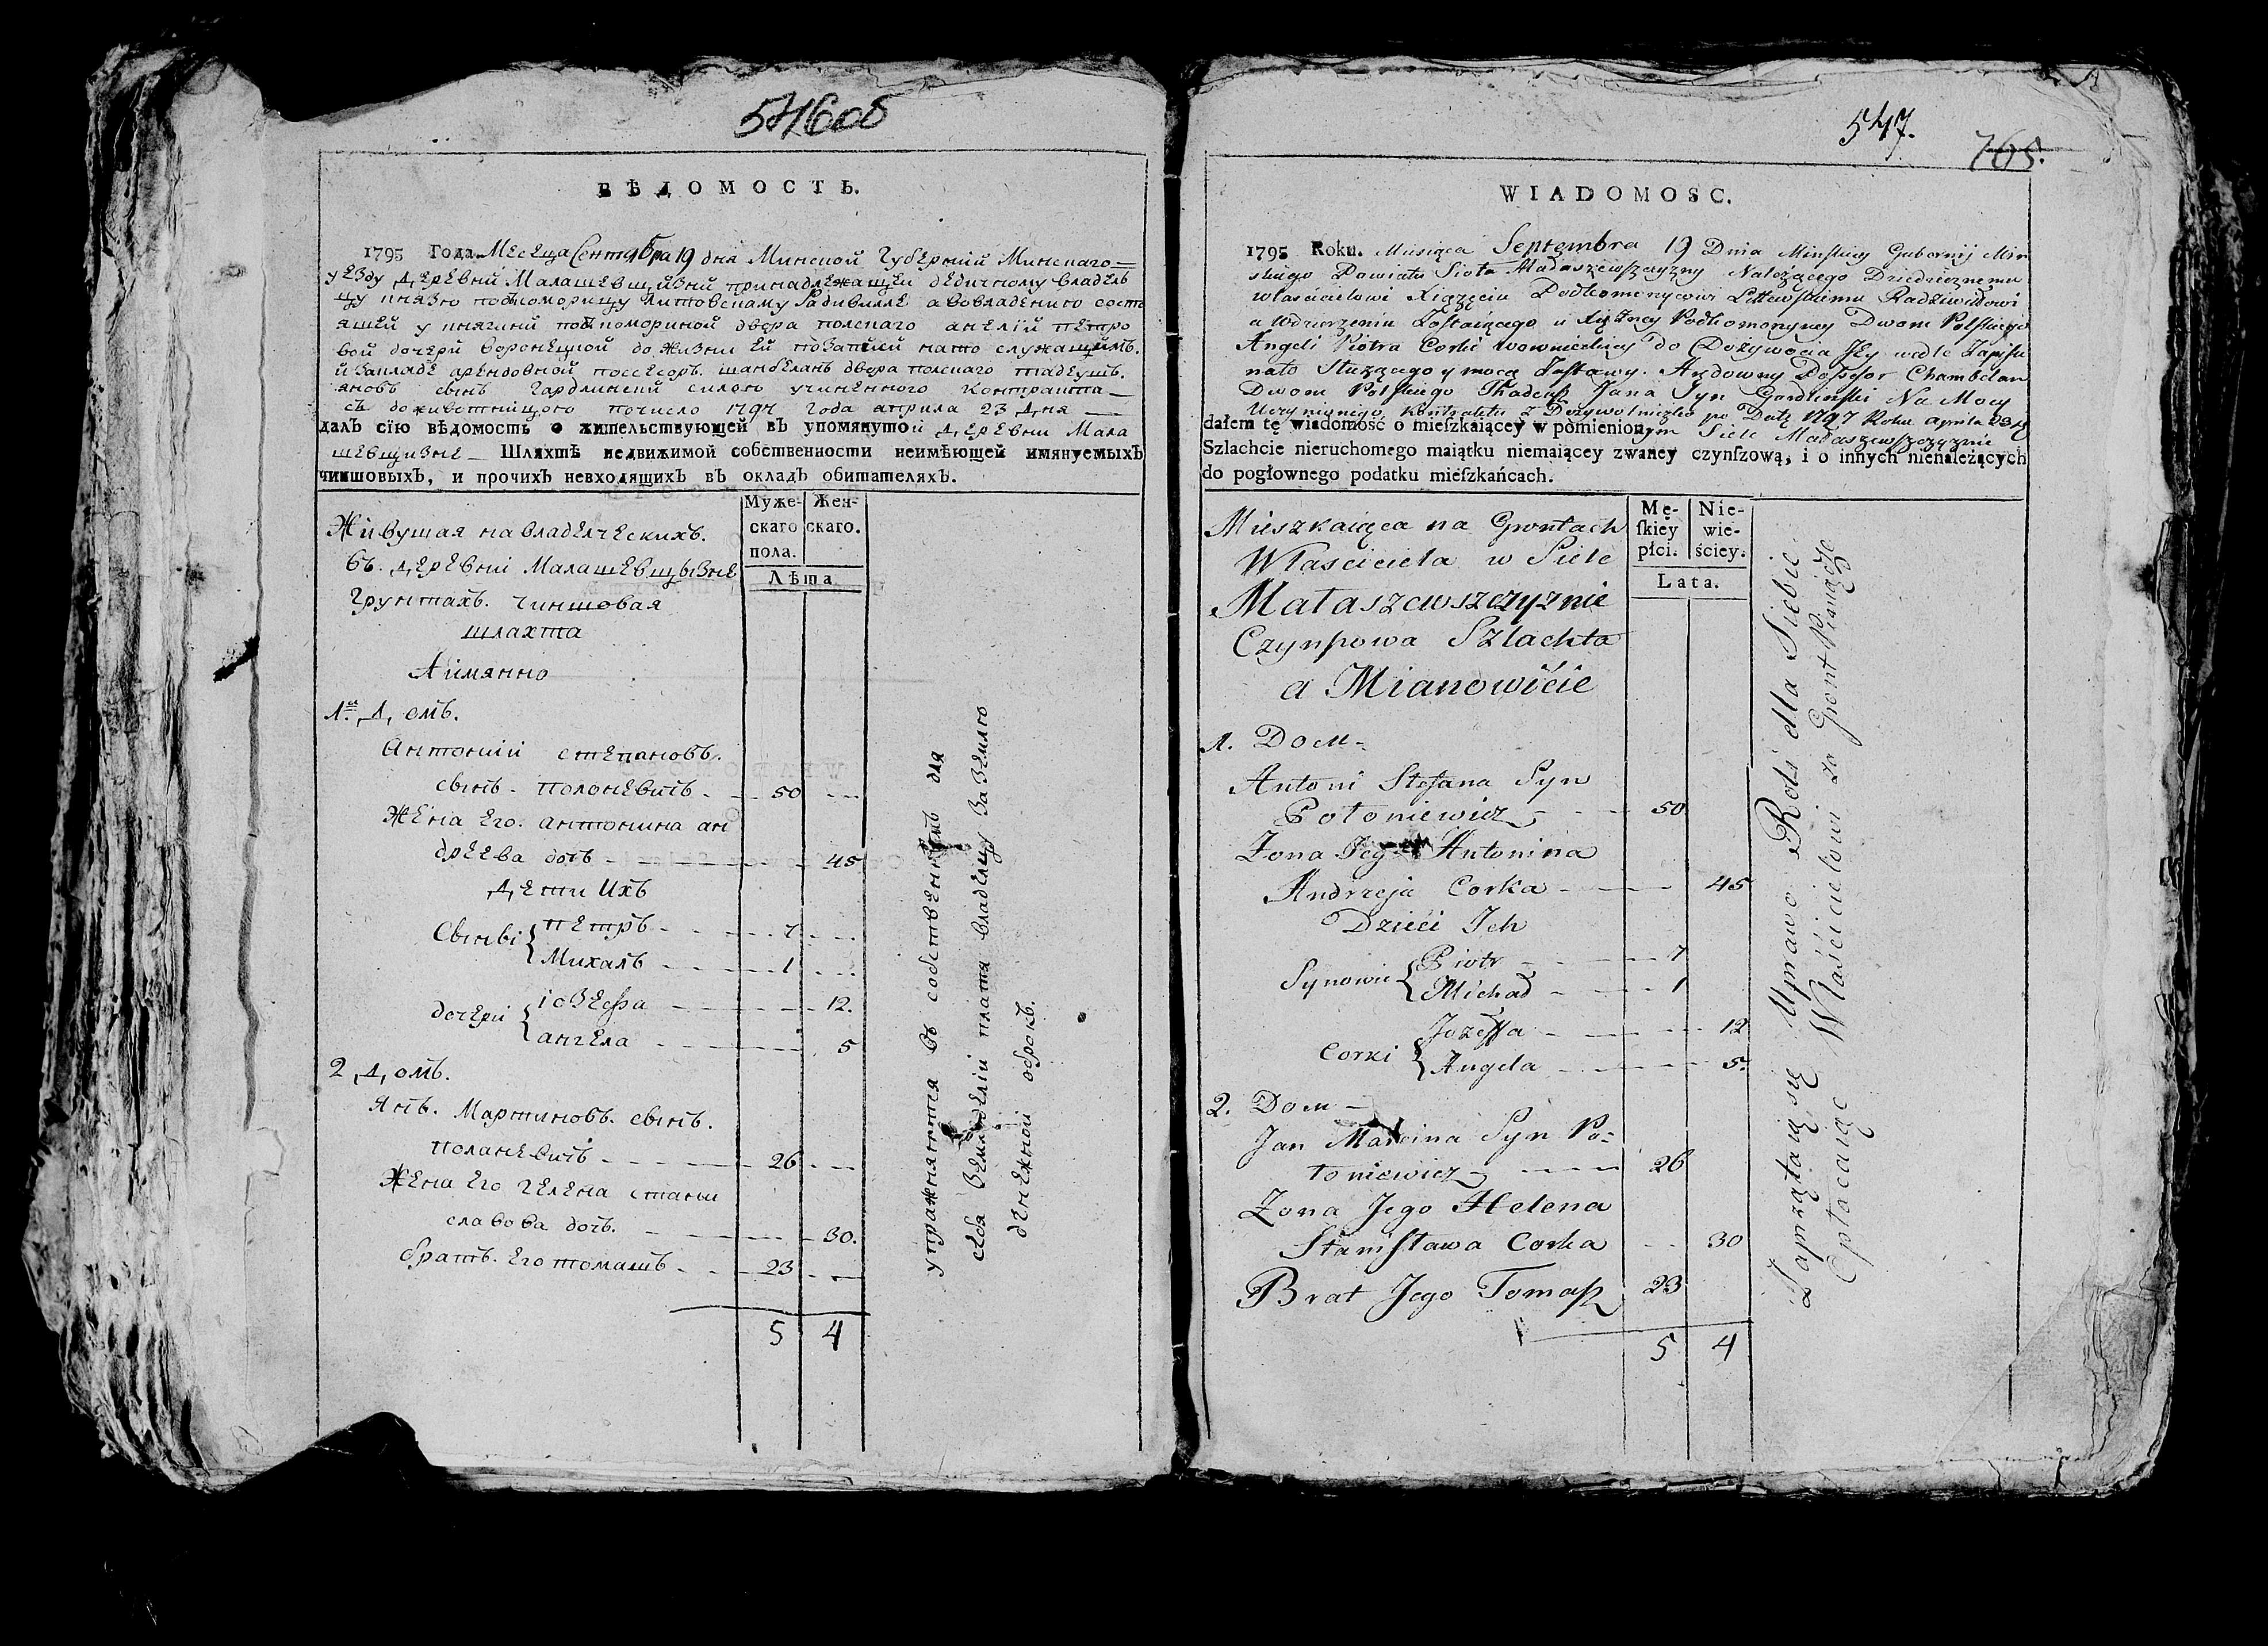 546 об
ВѢДОМОСТЬ.
1795 Года Месеца Сентября 19 дня Минской Губерніи Минскаго
уезду деревни Малашевщизни принадлежащей дедичному владель
цу князю подкоморищу Литовскаму Радивилле а вовладению состо
ящей у княгини подкомориной двора полскаго анелій петро
вой дочери до жизни ей позаписи нато служащимъ.
арендовной посесоръ. шанбеланъ двора полскаго тадеушъ.
яновъ сынъ Гардлинскій силою учиненного контракта
съ почисло 1797 Года априла 23 дня
далъ сїю вѣдомость о жительствующей въ упомянутой деревни Мала
шевщизне Шляхтѣ недвижимой собственности неимѣющей имянуемыхъ
чиншовыхъ, и прочихъ невходящихъ въ окладъ обитателяхъ.
Муже- Жен-
скаго скаго.
пола.
Лѣта.
Живущая на владелческихъ.
въ. деревни Малашевщызне
грунтахъ. чиншовая
шляхта
А имянно
1.й домъ.
Антоний степановъ.
сынъ. полоневичъ. 50
Жена его. антонина ан
дреева дочъ 45
дети ихъ
сыны { петръ 7
Михалъ 1
дочери { іозефа 12.
ангела 5
2 домъ.
Янъ. Мартиновъ. сынъ.
поланевичъ 26
Жена его гелена стани
славова дочъ. 30.
братъ. его томашъ 23
5 4
упражняются въ собственныъ для
себя земледелій плата владелцу за землю
денежной оброкъ.
547.
765.
WIADOMOSC.
1795 Roku. Miesiąca Septembra 19 Dnia Minskiey Gubernij Min
skiego Powiatu Sioła Małaszewszczyzny Należącego Dziedzicznemu
właścicielowi Xiążęciu Podkomorzycowi Littewskiemu Radziwiłłowi
a wdzierżeniu Zostaiącego u Xiężney Podkomorzyney Dworu Polskiego
Angeli Piotra Corki do Dożywocia Jey wedle Zapisu
nato Służącego y mocą Zastawy. Arędowny Possessor Chambelan
Dworu Polskiego Thadeusz Jana Syn Gardliński Na Mocy
Uczynionego Kontraktu z Dożywotniczką po Datę 1797 Roku Aprila 23 D
dałem tę wiadomość o mieſzkaiącey w pomienionym Siele Małaszewszczyznie
Szlachcie nieruchomego maiątku niemaiącey zwaney czynſzową, i o innych nienależących
do pogłownego podatku mieſzkańcach.
Mę- Nie-
ſkiey wie-
płci. ściey.
Lata.
Mieszkaiąca na Grontach
Własciciela w Siele
Małaszewszczyznie
Czynszowa Szlachta
a Mianowićie
1. Dom
Antoni Stefana Syn
Połoniewicz 50
Zona Jego Antonina
Andrzeja Corka 45
Dzieći Jch
Synowie { Piotr 7
Michał 1
Corki { Jozeffa 12
Angela 5.
2. Dom
Jan Marcina Syn Po=
łoniewicz 26
Zona Jego Helena
Stanisława Corka 30
Brat Jego Tomasz 23
5 4
Zaprzątaią się Uprawą Roli dla Siebie
Opłacaiąc Właścicielowi za Gront Pieniądze